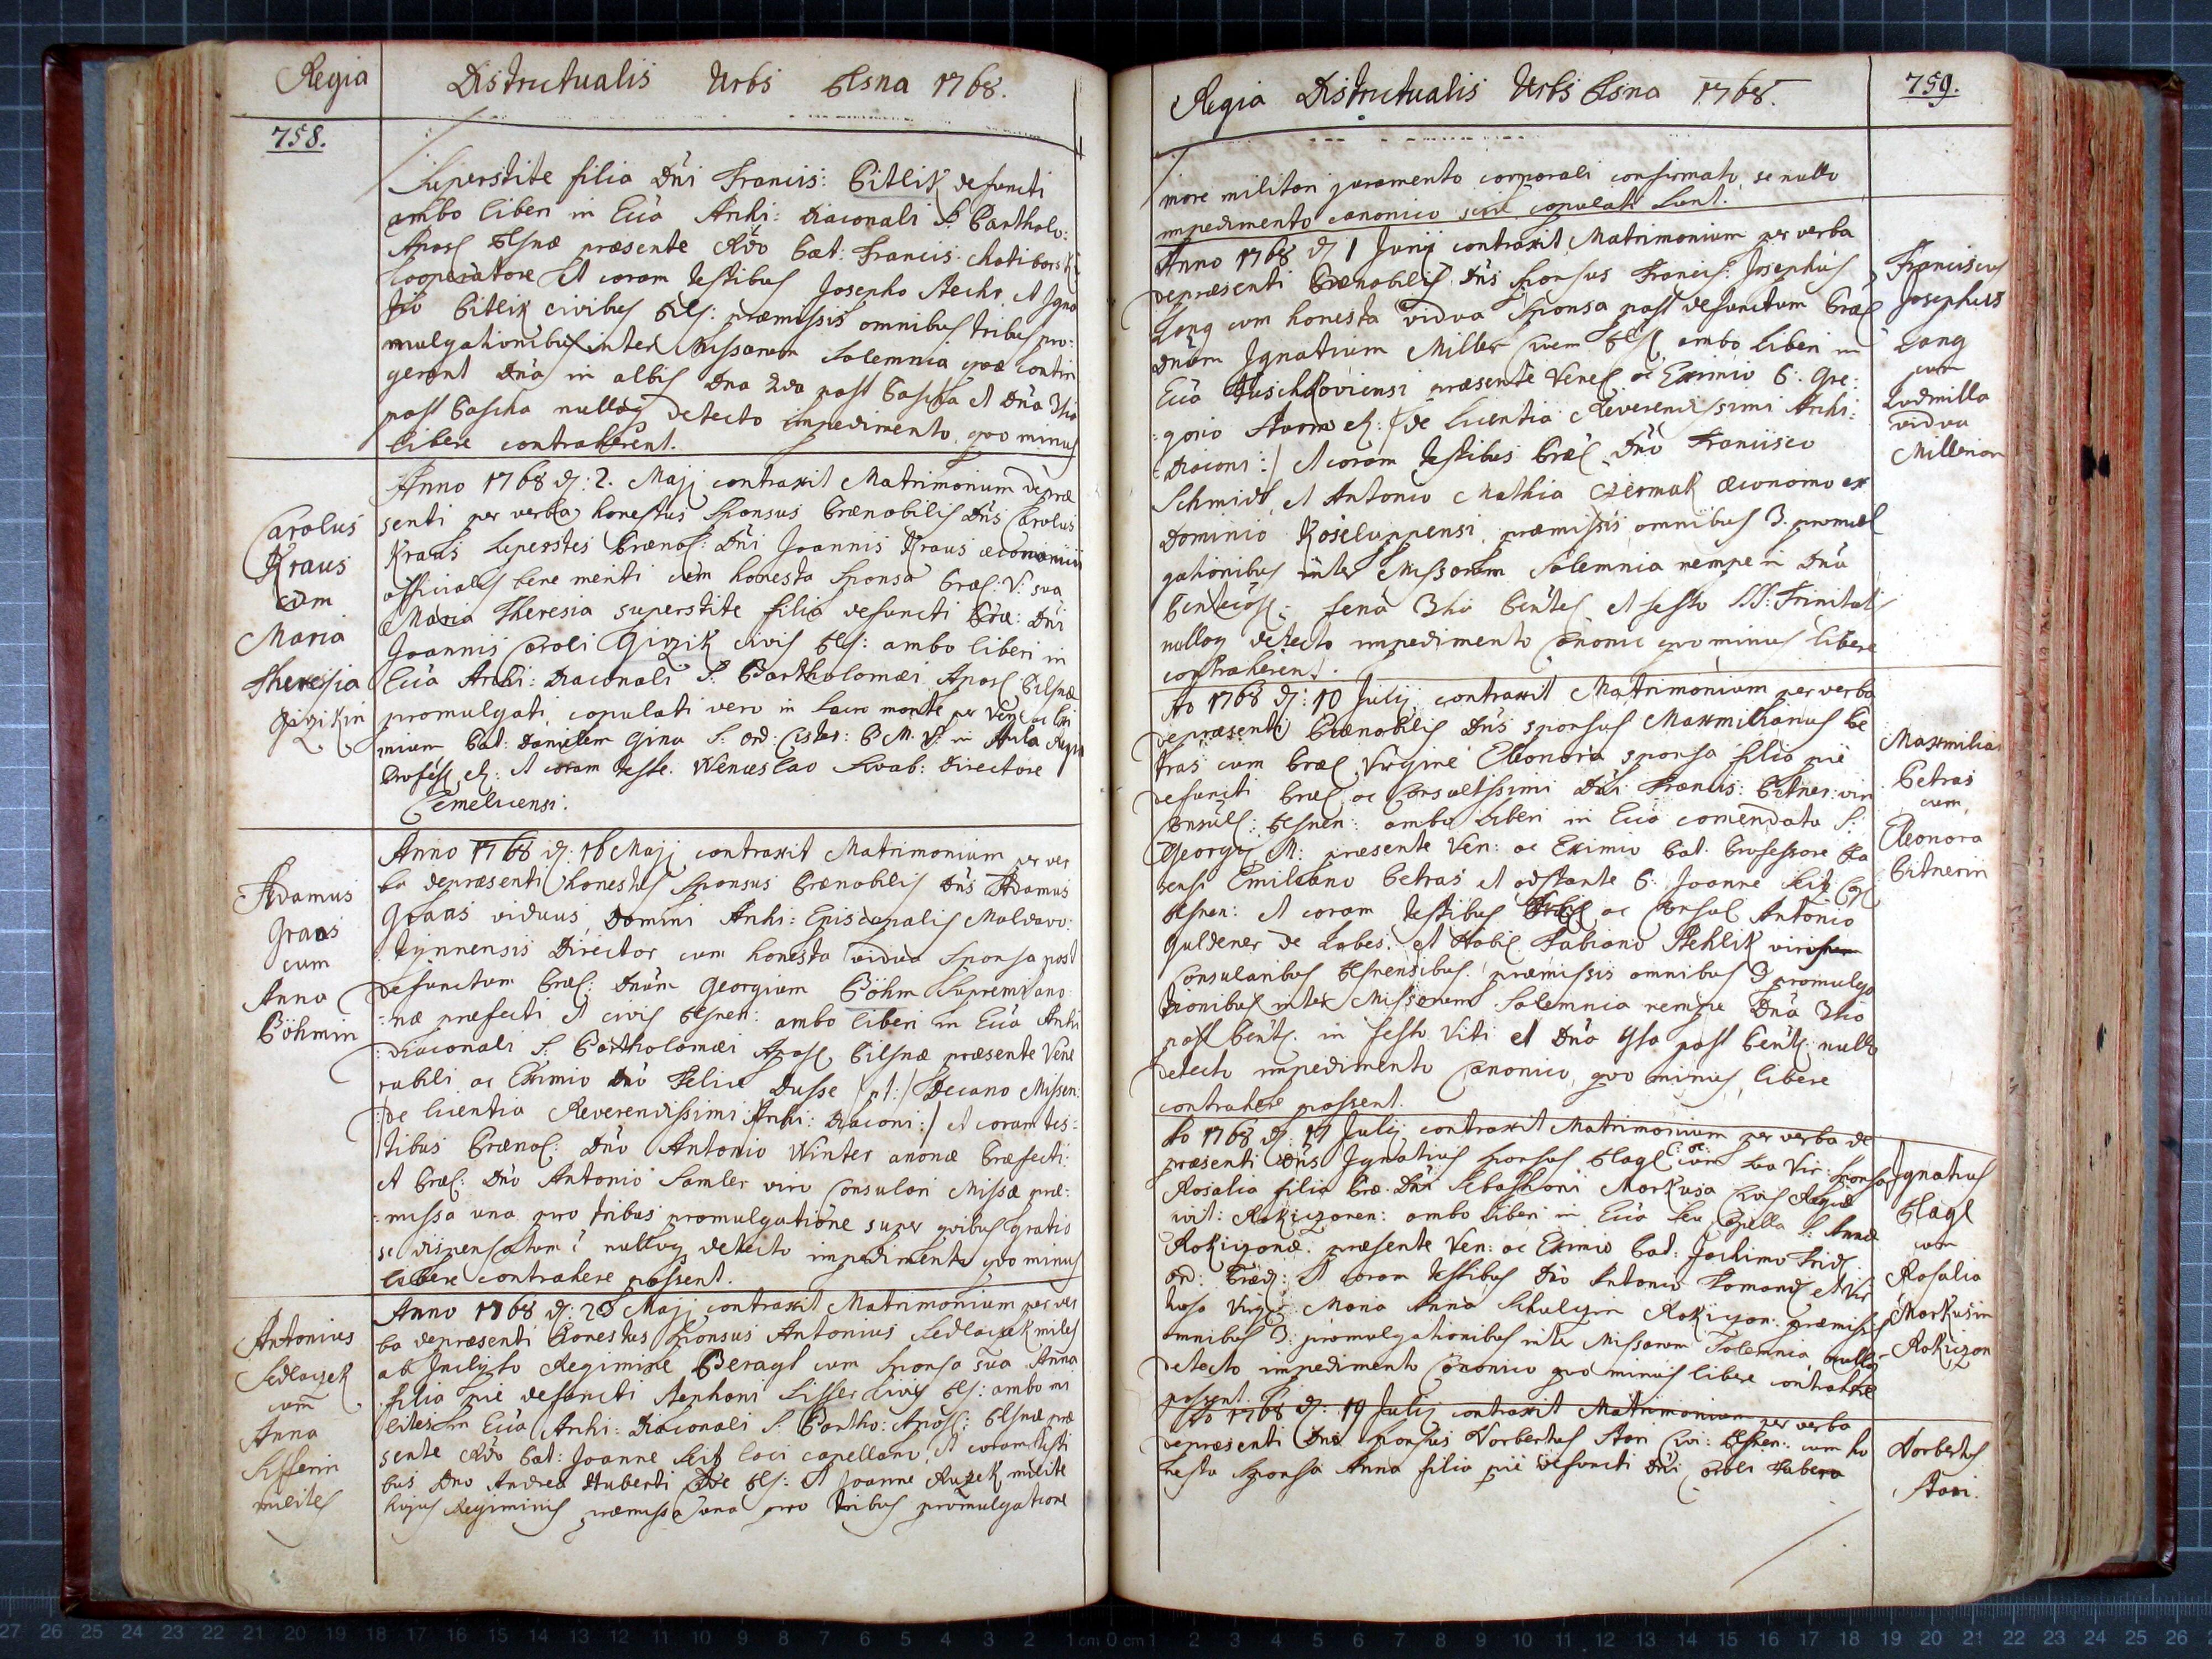 Regia Districtualis Urbs Plsna 1768.
758.
Superstite filia Dni Francis: Pitlik defuncti
ambo liberi in Ecca Archi: Diaconali S. Bartholo:
Apos Plsnæ præsente Rdo Pat: Francis: Ratiborsk
Cooperatore et coram testibus Josepho Stechr et Igna
tio Pitlik civibus Pils: præmissis omnibus tribus pro:
mulgationibus inter Missarum solemnia quæ contin
gerant Dna in albis Dna 2da post Pascha et Dna 3tia
post Pascha nulloq detecto impedimento, quo minus
libere contraherent.
Carolus
Kraus
cum
Maria
Theresia
Gizikin
Anno 1768 d: 2. Maji contraxit Matrimonium depræ
senti per verba honestus sponsus Prænobilis Dns Carolus
Kraus superstes Prænob: Dni Joannis Kraus œconomiæ
officialis bene meriti cum honesta sponsa Præ: V: sua
Maria Theresia superstite filia defuncti Præ: Dni
Joannis Caroli Gizik civis Pls: ambo liberi in
Ecca Archi: Diaconali S. Bartholomæi Apos Pilsnæ
promulgati, copulati vero in sacro monte per Vene ac Exi
mium Pat: Danielem Gina S: Ord: Cister: B M. V: in Aula Regia
Profess et: et coram teste Wenceslao Swab: Directore
Cemelicensi.
Adamus
Graas
cum
Anna
Böhmin
Anno 1768 d: 16 Maji contraxit Matrimonium per ver
ba depræsenti honestus sponsus Prænobilis Dns Adamus
Graas viduus Domini Archi: Episcopalis Moldavo:
tynnensis Director cum honesta vidua sponsa post
defunctum Præ: Dnum Georgium Böhm supremi ano
=næ præfecti et civis Plsnen: ambo liberi in Ecca Archi
:diaconali S: Bartholomæi Apos Pilsnæ præsente Vene
rabili ac Eximio Dno Felice Dusse /pt:/ Decano Missen:
:/de licentia Reverendissimi Archi: Diaconi:/ et coram tes=
tibus Prænob: Dno Antonio Winter anonæ Præfecti:
et Præ: Dno Antonio Samler viro Consulari Missa præ:
=missa una pro tribus promulgatione super quibus gratis
se dispensatum: nulloq detecto impedimento quo minus
libere contrahere possent.
Antonius
Sedlaczek
cum
Anna
Sisserin
milites
Anno 1768 d: 28 Maji contraxit Matrimonium per ver
ba depræsenti honestus sponsus Antonius Sedlaczek miles
ab Inclyto Regimine Beragl cum sponsa sua Anna
filia pie defuncti Stephani Sisser civis Pls: ambo mi
lites in Ecca Archi: Diaconali S. Bartho: Apos: Plsnæ præ
sente Rdo Pat: Joanne Seitz loci capellano, et coram testi
bus Dno Andrea Huberti cive Pls: et Joanne Ruzek milite
hujus Regiminis præmissa una pro tribus promulgatione
Regia Districtualis Urbs Plsna 1768.
759.
more militari juramento corporali confirmato, se nullo
impedimento canonico copulati sunt.
Anno 1768 d 1 Junij contraxit Matrimonium per verba
depræsenti Prænobilis Dns sponsus Francis: Josephus
Lang cum honesta vidua sponsa post defunctum Præ
Dnum Ignatium Miller civem Pls ambo liberi in
Ecca Tuschkoviensi præsente Vene ac Eximio P: Gre:
=gorio et: /de licentia Reverendissimi Archi:
=Diaconi:/ et coram testibus Præ Dno Francisco
Schmidt, et Antonio Mathia Czermak œconomo ex
Dominio Koseluppensi præmissis omnibus 3. promul
gationibus inter Missarum solemnia nempe in Dna
Pentecos: feria 3tia Pentes et festo SS: Trinitatis
nulloq detecto impedimento canonic quo minus libere
contraherent.
Franciscus
Josephus
Lang
cum
Ludmilla
vidua
Millerian
Ao 1768 d: 10 Julij contraxit Matrimonium per verba
depræsenti Prænobilis Dns sponsus Maxmilianus Pe
tras cum Præ Virgine Eleonora sponsa filia pie
defuncti Præ ac Consultissimi Dni Francis: Pitner: viri
Consul: Plsnen: ambo liberi in Ecca comendata S:
Georgij M: præsente Ven: ac Eximio Pat. Professore
Emiliano Petras et adstante P. Joanne Seitz
Plsnen: et coram testibus ac Consul Antonio
Guldener de Lobes. et Nobil Fabiano Stehlik viris
Consularibus Plsnensibus præmissis omnibus 3 promulga
tionibus inter Missarum solemnia nempe Dna 3tia
post Pent. in festo Viti et Dna 4ta post Pent. nullo
detecto impedimento Canonico, quo minus libere
contrahere possent.
Maxmilia
Petras
cum
Eleonora
Pitnerin
Ao 1768 d: 17 Julij contraxit Matrimonium per verba de
præsenti Dns Ignatius sponsus Plagl cum sua Vir: sponsa
Rosalia filia Præ: Dni Sebastiani Markusa civis Regiæ
civit: Rokiczanen: ambo liberi in Ecca seu Capella S: Annæ
Rokiczanæ præsente Ven: ac Eximio Pat: Joachimo Frid
ord: Præd: et coram testibus Dno Antonio et Vir
tuosa Virg: Maria Anna Schulzin Rokizan: præmissis
omnibus 3: promulgationibus inter Missarum solemnia nulloq
detecto impedimento Canonico quo minus libere contrahere
possent.
Ignatius
Plagl
cum
Rosalia
Markusin
Rokiczan
Ao 1768 d: 19 Julij contraxit Matrimonium per verba
depræsenti Dns sponsus Norbertus Stari civi: Plsnen: cum ho
nesta sponsa Anna filia pie defuncti Dni
Norbertus
Stari.